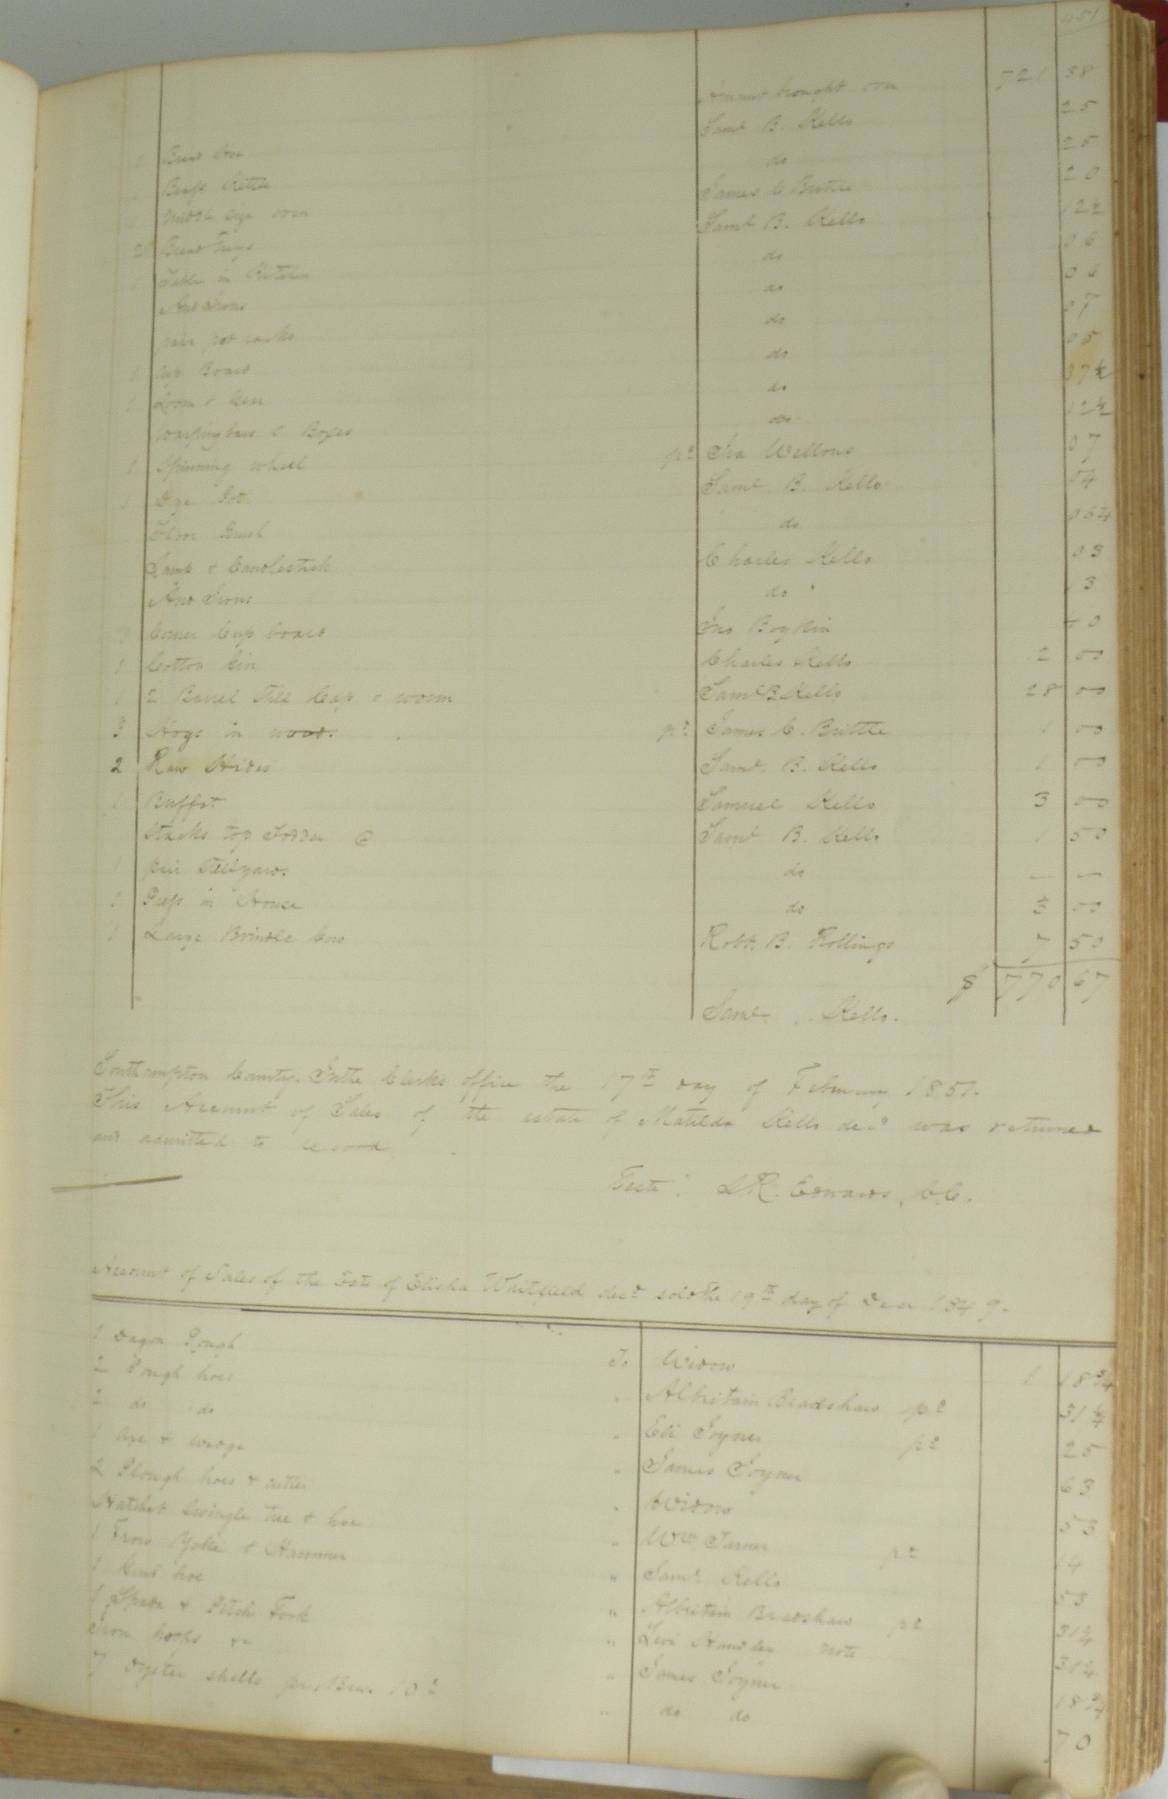 451
Amount brought over 721 38
Saml B. Kello 25
1 Bread tree do 25
1 Brass Kettle James C Brittle 20
1 Middle size oven Saml B. Kello 12½
2 Bread Trays do 06
1 Table in Kitchen do 06
And Irons do 07
pair pot racks do 05
1 Cup Board do 37½
1 Loom & Gear do 12½
Warping bars & Boxes pd Ira Wellons 07
1 Spinning wheel Saml B. Kello 04
1 Dye Pot do 06¼
Floor Brush Charles Kello 03
Lamp & Candlestick do 13
And Irons Jno Boykin 40
Corner Cup board Charles Kello 2 00
1 Cotton Gin Saml B Kello 28 00
1 2 Barrel Still Cap & worm pd James C Brittle 1 00
3 Hogs in woods. Saml. B. Kello 1 00
2 Raw Hides Samuel Kello 3 00
1 Buffet Saml B. Kello 1 50
Stacks top Fodder @ do
1 pair Stillyards do 3 00
1 Press in House Robt. B. Rollings 7 50
1 Large Brindle Cow $ 770 67
Saml. Kello.
Southampton County. In the Clerks office the 17th day of February 1851.
This Account of Sales of the estate of Matilda Kello decd was returned
and admitted to record.
Teste: L R. Edwards, C.C.
Account of Sales of the Este of Elisha Whitfield decd sold the 19th day of Decr 1849.
1 Dagon Plough To Widow 1 18¾
2 Plough hoes " Albritain Bradshaw pd 31¼
2 do do " Eli Joyner pd 25
1 Axe & wedge " James Joyner 63
2 Plough hoes & cutter " Widow 53
Hatchet Swingle tree & hoe " Wm Turner pd 14
1 Frow Yoke & Hammer " Saml Kello 53
1 Grub hoe " Albritain Bradshaw pd 31¼
1 Spade & Pitch Fork " Levi Handley note 31¼
Iron hoops &c " James Joyner 18¾
7 Oyster shells per Bus. 10¢ " do do 70